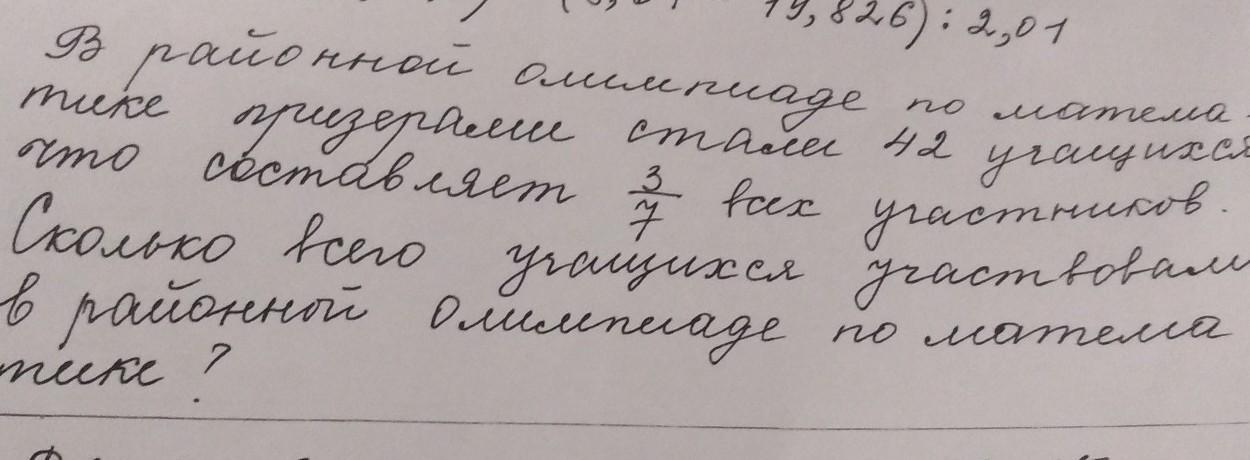 19,826) : 2,01
В районной олимпиаде по матема-
тике призерами стали 42 учащихся
что составляет 3/7 всех участников.
Сколько всего учащихся участвовали
в районной олимпиаде по матема
тике ?